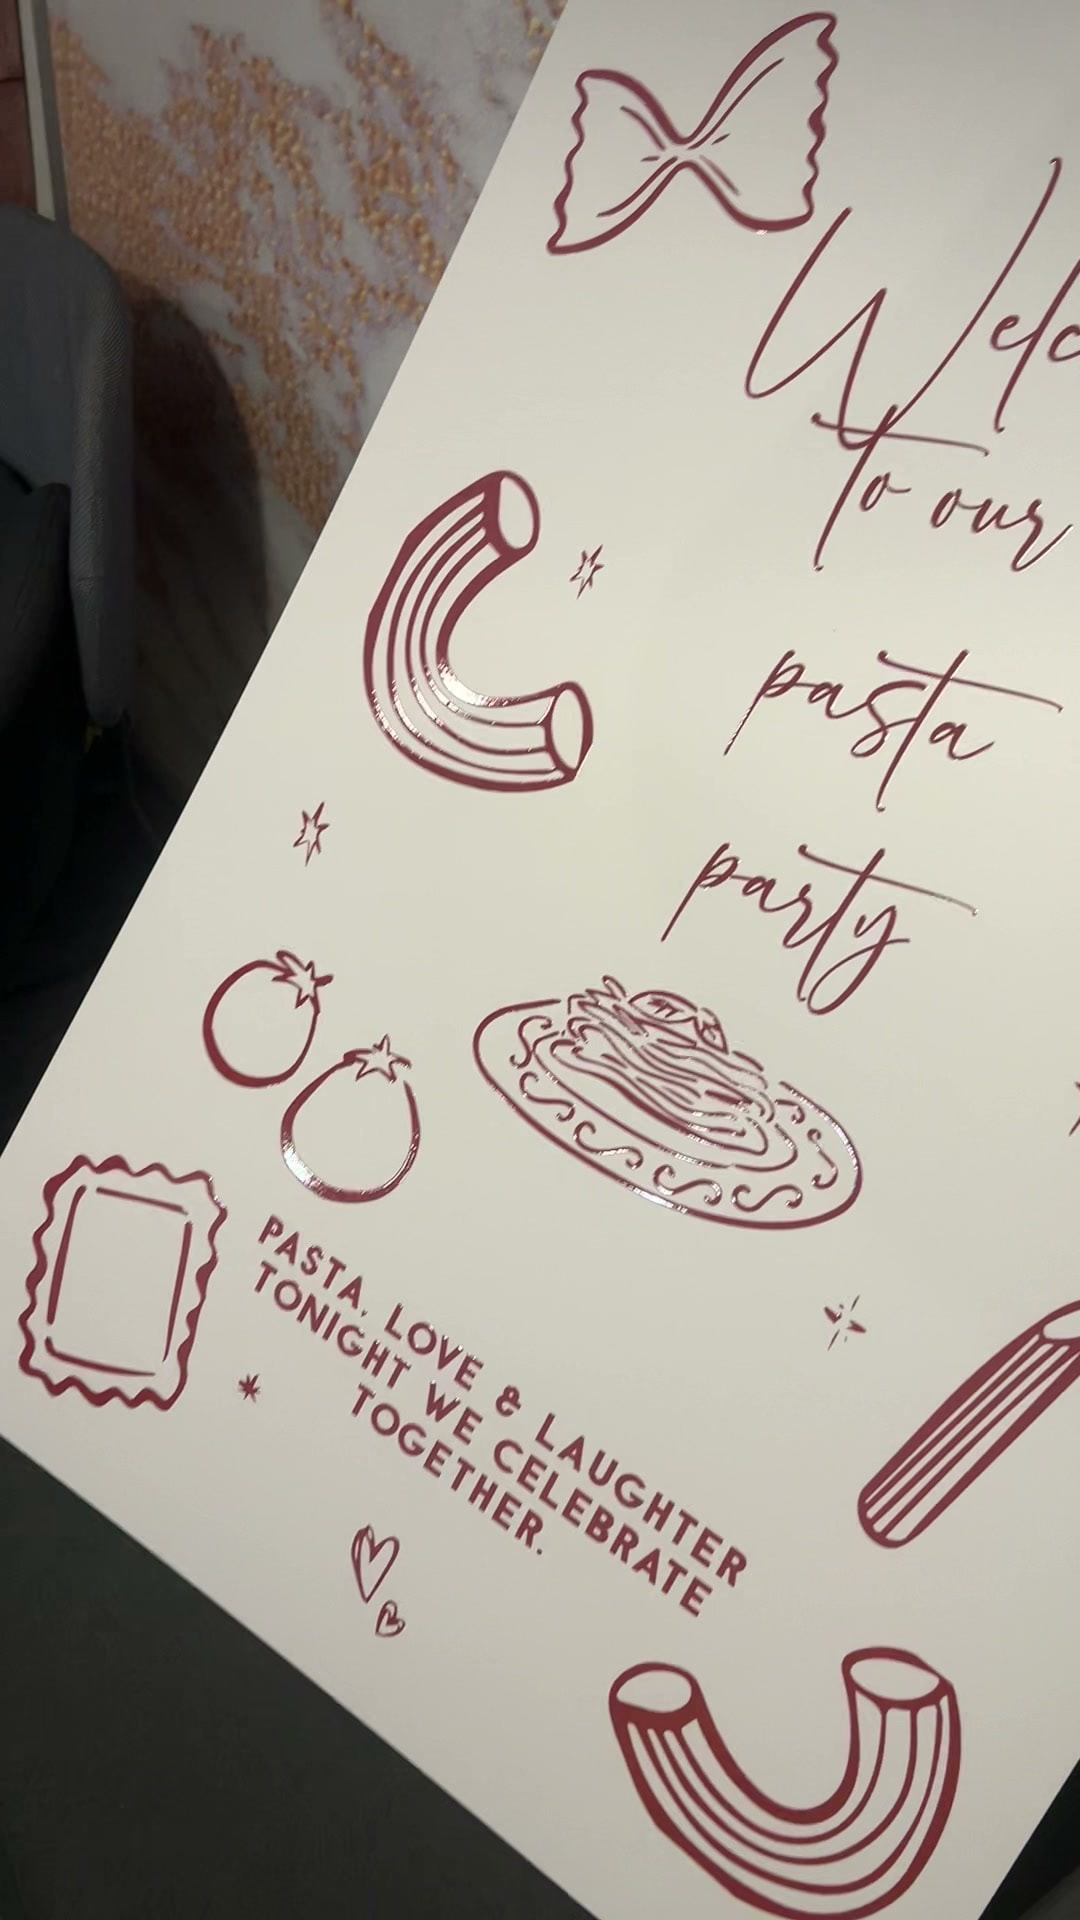 Welc
to our
pasta
party
PASTA, LOVE & LAUGHTER
TONIGHT WE CELEBRATE
TOGETHER.